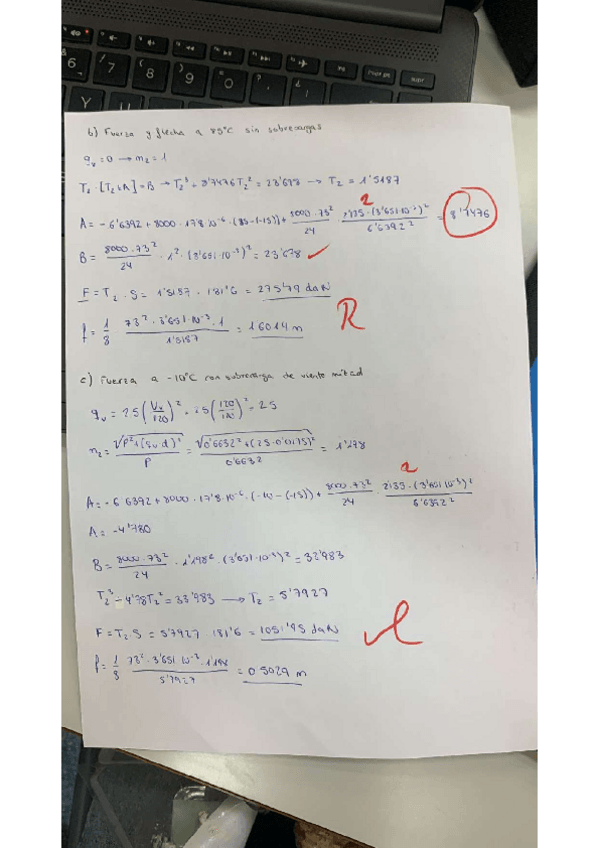 b) Fuerza y flecha a 85°C sin sobrecargas
gv = 0 → m2 = 1
T2² · [T2 + A] = B → T2³ + 8'7476 T2² = 23'678 → T2 = 1'5187
A = -6'6392 + 8000 · 17'8·10⁻⁶ · (85-(-15)) + 8000 · 73² / 24 · (3'651·10⁻³)² / 6'6392² = 8'7476
2
B = 8000 · 73² / 24 · 1² · (3'651·10⁻³)² = 23'678
F = T2 · S = 1'5187 · 181'6 = 275'79 daN
f = 1/8 · 73² · 3'651·10⁻³ · 1 / 1'5187 = 1'6014 m
R
c) Fuerza a -10°C con sobrecarga de viento mitad
gv = 25 (Vv/120)² = 25 (120/120)² = 25
m2 = √(P² + (gv d)²) / P = √(0'6632² + (25·0'0175)²) / 0'6632
A = -6'6392 + 8000 · 17'8·10⁻⁶ · (-10-(-15)) + 8000 · 73² / 24 · (3'651·10⁻³)² / 6'6392²
2
A = -4'780
B = 8000 · 73² / 24 · 1'198² · (3'651·10⁻³)² = 33'983
T2³ - 4'78 T2² = 33'983 → T2 = 5'7927
F = T2 · S = 5'7927 · 181'6 = 1051'95 daN
f = 1/8 · 73² · 3'651·10⁻³ · 1'198 / 5'7927 = 0'5029 m